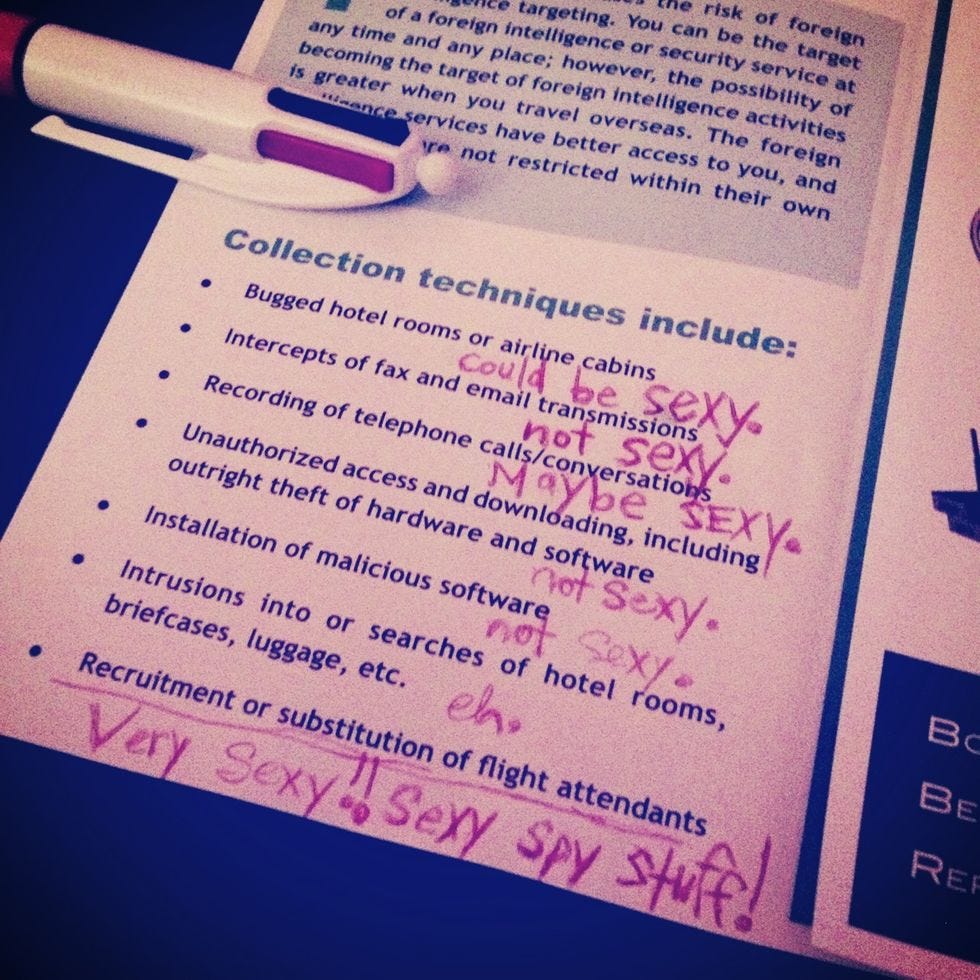 the risk of foreign
targeting. You can be the target
of a foreign intelligence or security service at
any time and any place; however, the possibility of
becoming the target of foreign intelligence activities
is greater when you travel overseas. The foreign
services have better access to you, and
not restricted within their own
Collection techniques include:
• Bugged hotel rooms or airline cabins
Could be sexy.
• Intercepts of fax and email transmissions
not sexy.
• Recording of telephone calls/conversations
Maybe SEXY.
• Unauthorized access and downloading, including
outright theft of hardware and software
not Sexy.
• Installation of malicious software
not Sexy.
• Intrusions into or searches of hotel rooms,
briefcases, luggage, etc.
eh.
• Recruitment or substitution of flight attendants
Very Sexy!! Sexy Spy Stuff!